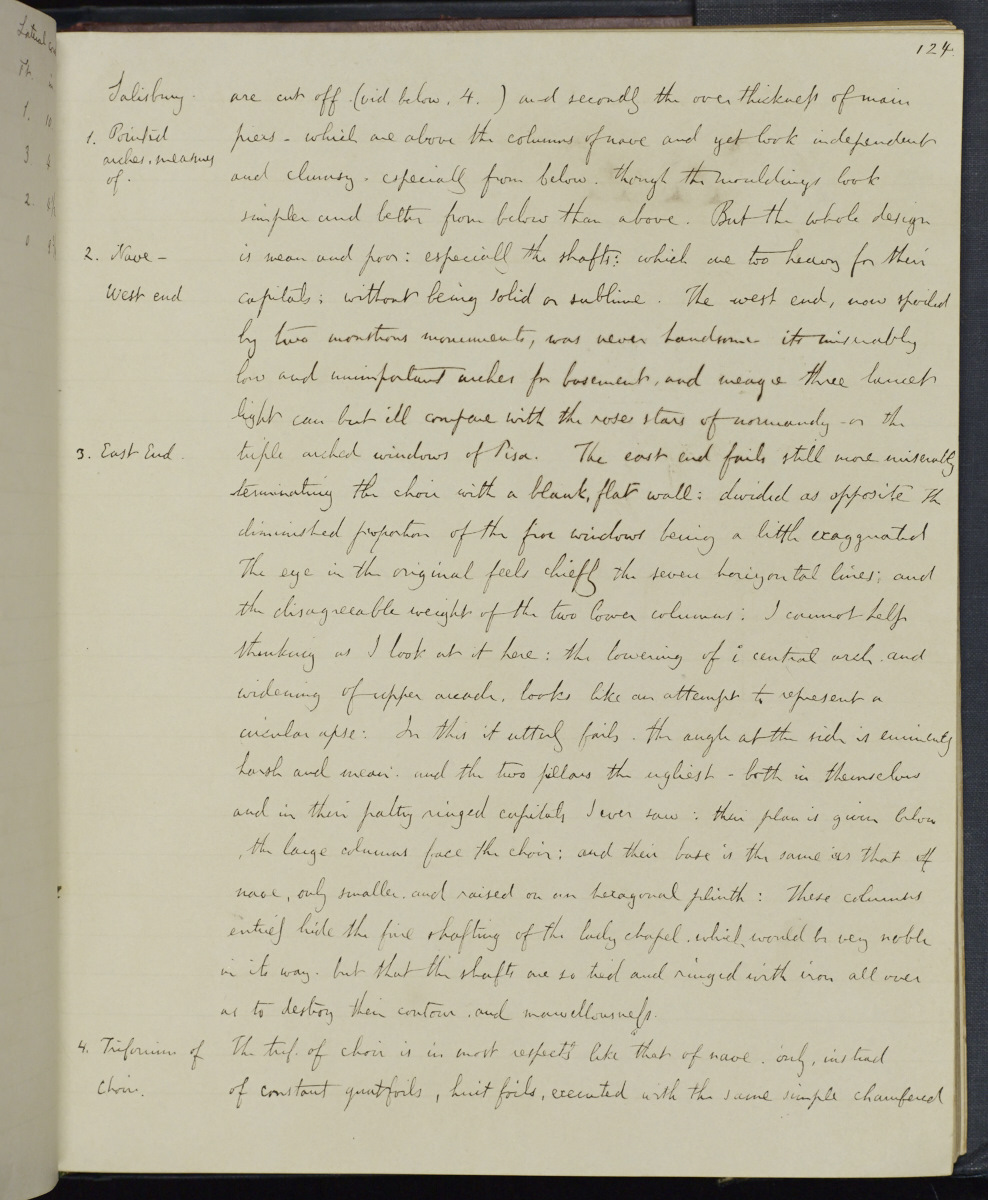 124.
Salisbury. are cut off. (vid below. 4. ) and secondly the over thickness of main
1. Pointed piers - which are above the columns of nave and yet look independent
arches, measures
of. and clumsy - especially from below. though the mouldings look
simpler and better from below than above. But the whole design
2. Nave - is mean and poor: especially the shafts: which are too heavy for their
West end capitals; without being solid or sublime. The west end, now spoiled
by two monstrous monuments, was never handsome its miserably
low and unimportant arches for basement, and meagre three lancet
light can but ill compare with the rose stars of normandy - or the
3. East End. triple arched windows of Pisa. The east end fails still more miserably
terminating the choir with a blank, flat wall: divided as opposite the
diminished proportion of the five windows being a little exaggerated
The eye in the original feels chiefly the seven horizontal lines; and
the disagreeable weight of the two lower columns: I cannot help
thinking as I look at it here: the lowering of central arch and
widening of upper arcade, looks like an attempt to represent a
circular apse: In this it utterly fails. the angle at the side is eminently
harsh and mean. and the two pillars the ugliest - both in themselves
and in their paltry ringed capitals I ever saw: their plan is given below
, the large columns face the choir; and their base is the same as that of
nave, only smaller. and raised on an hexagonal plinth: These columns
entirely hide the fine shafting of the lady chapel. which would be very noble
in its way. but that the shafts are so tied and ringed with iron all over
as to destroy their contour. and marvellousness.
4. Triforium of The trif. of choir is in most respects like that of nave. only, instead
choir. of constant quatrfoils, huit foils, executed with the same simple chamfered